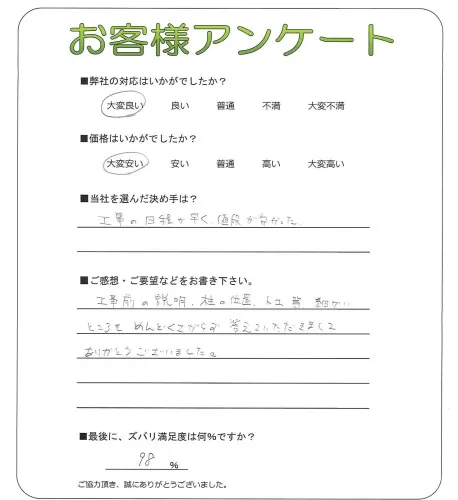 お客様アンケート
■弊社の対応はいかがでしたか？
大変良い 良い 普通 不満 大変不満
■価格はいかがでしたか？
大変安い 安い 普通 高い 大変高い
■当社を選んだ決め手は？
工事の日程が早く、値段が安かった。
■ご感想・ご要望などをお書き下さい。
工事前の説明、柱の位置、 等、細かい
ところも めんどくさがらず 答えていただきまして
ありがとうございました。
■最後に、ズバリ満足度は何％ですか？
98 ％
ご協力頂き、誠にありがとうございました。